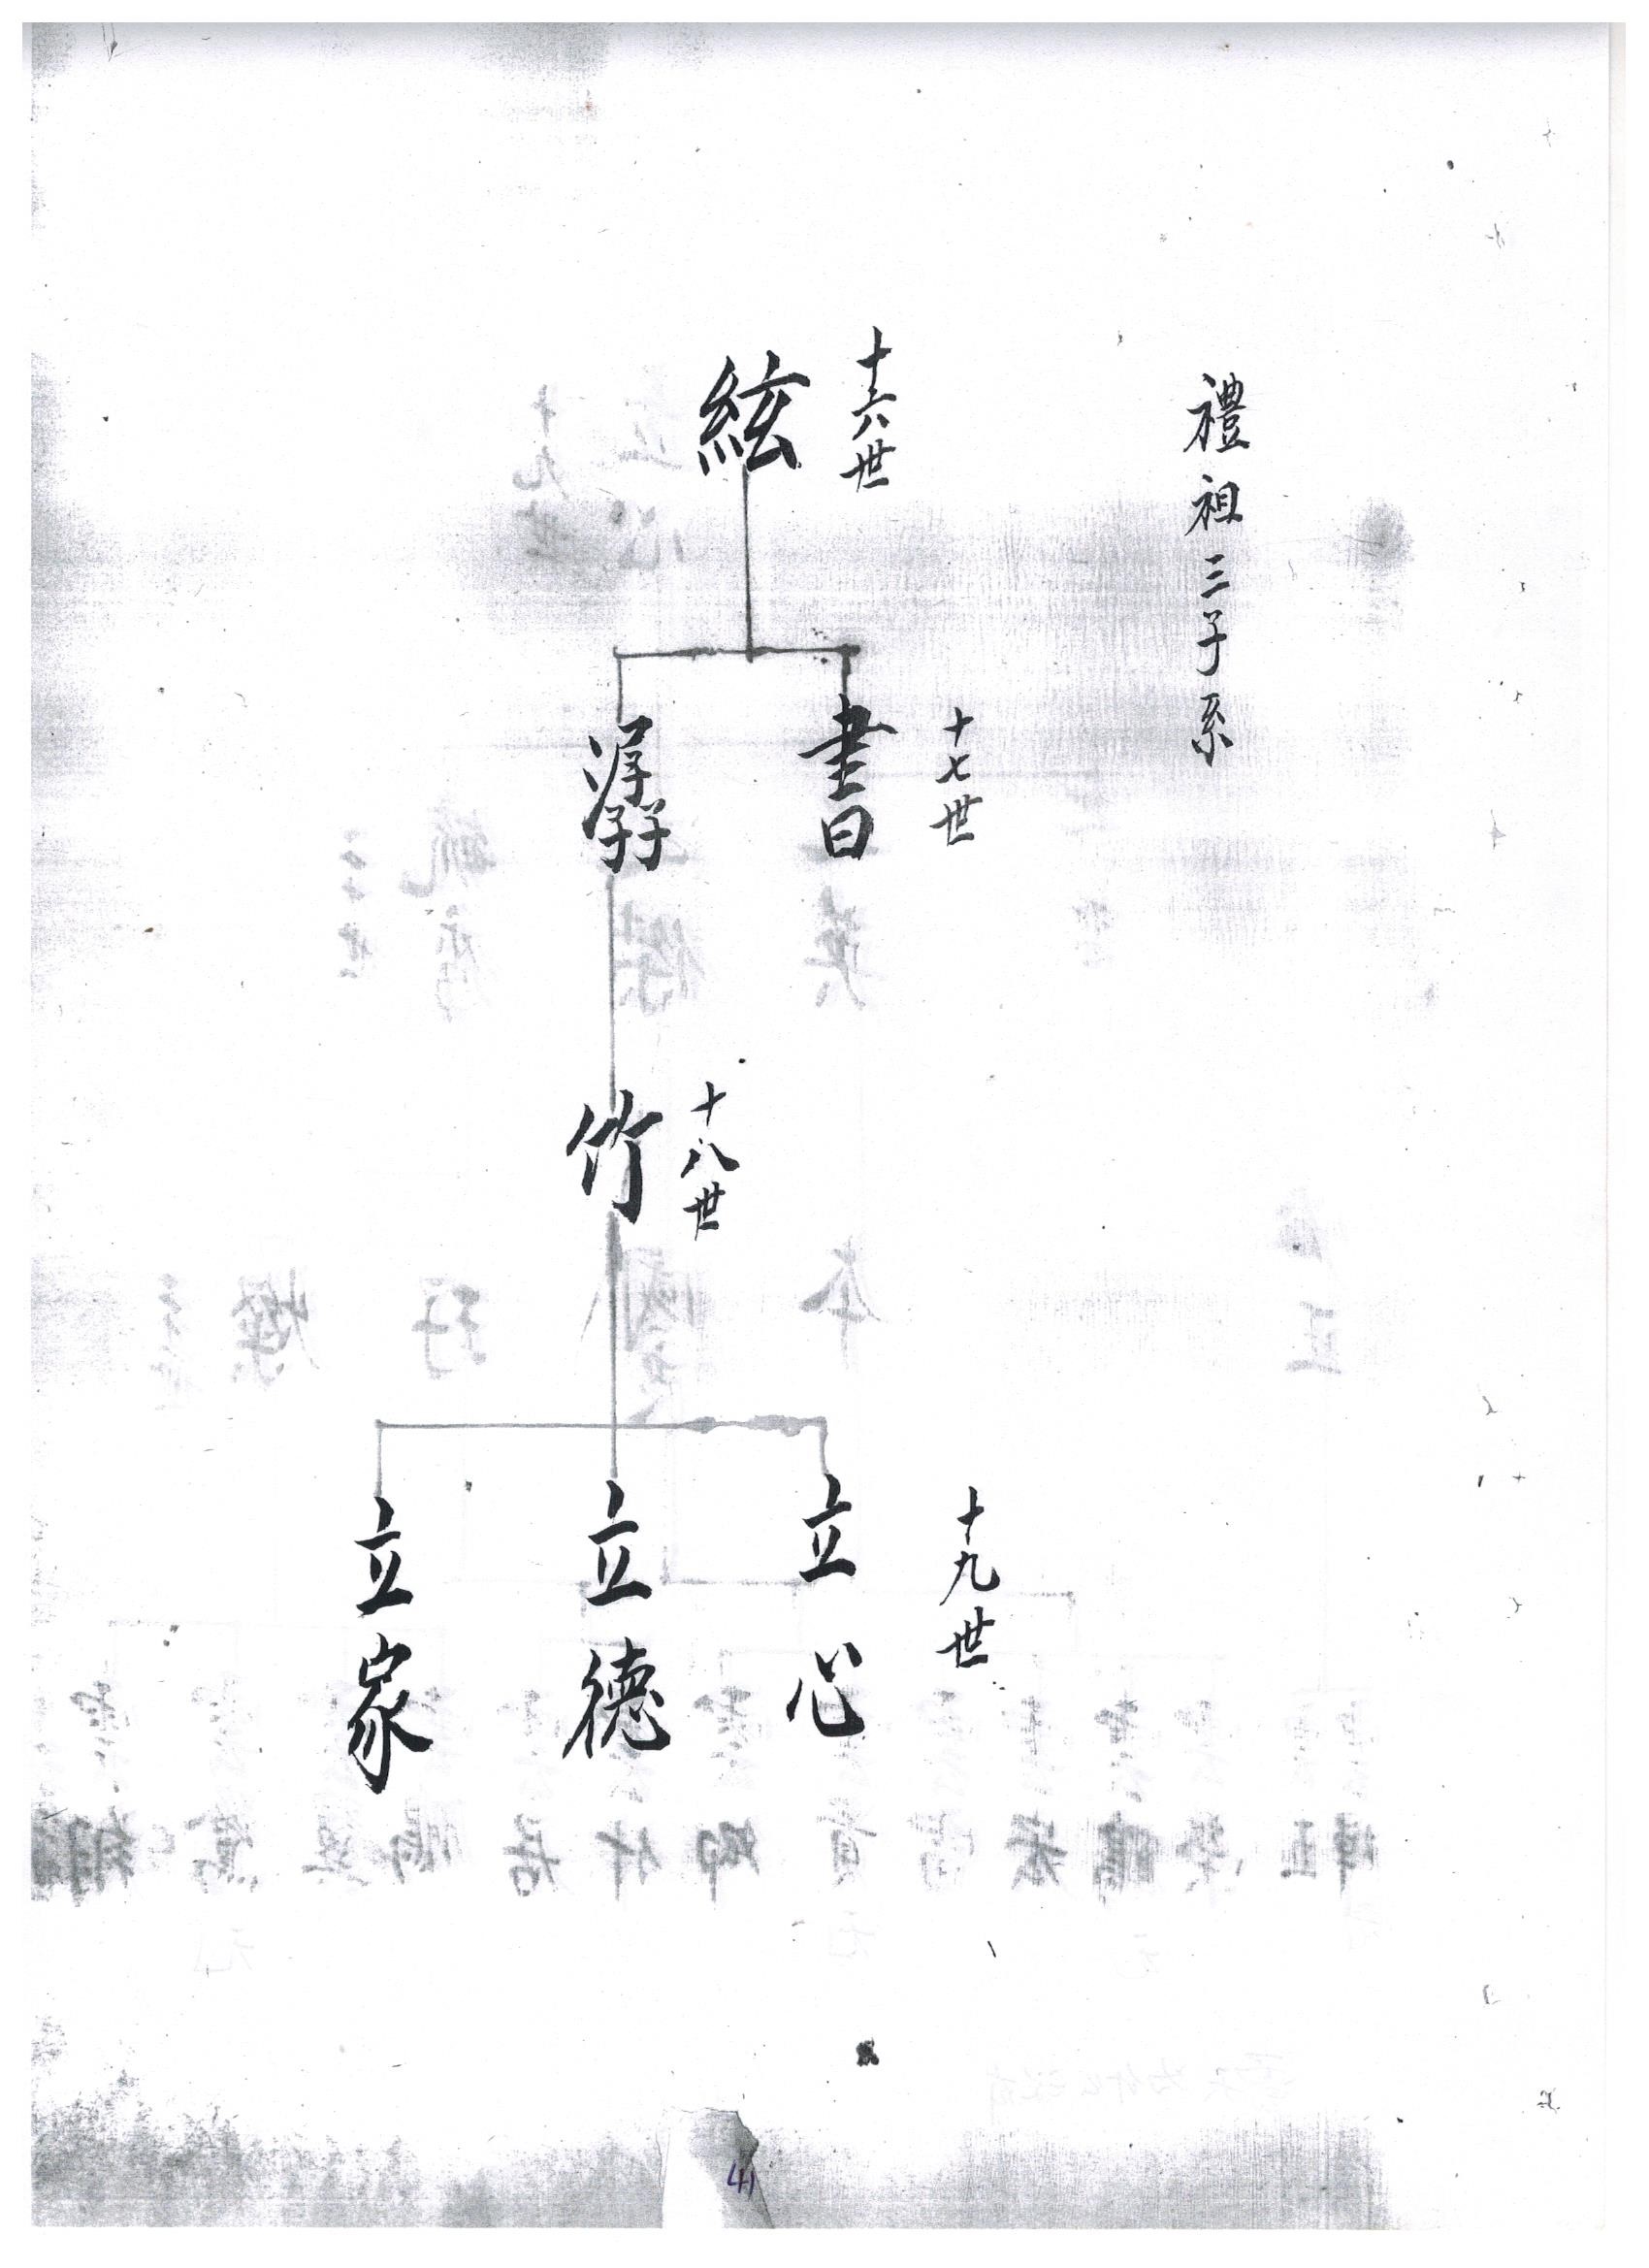 禮祖三子系
十六世
絃
十七世
書
潺
十八世
竹
十九世
立心
立德
立家
41